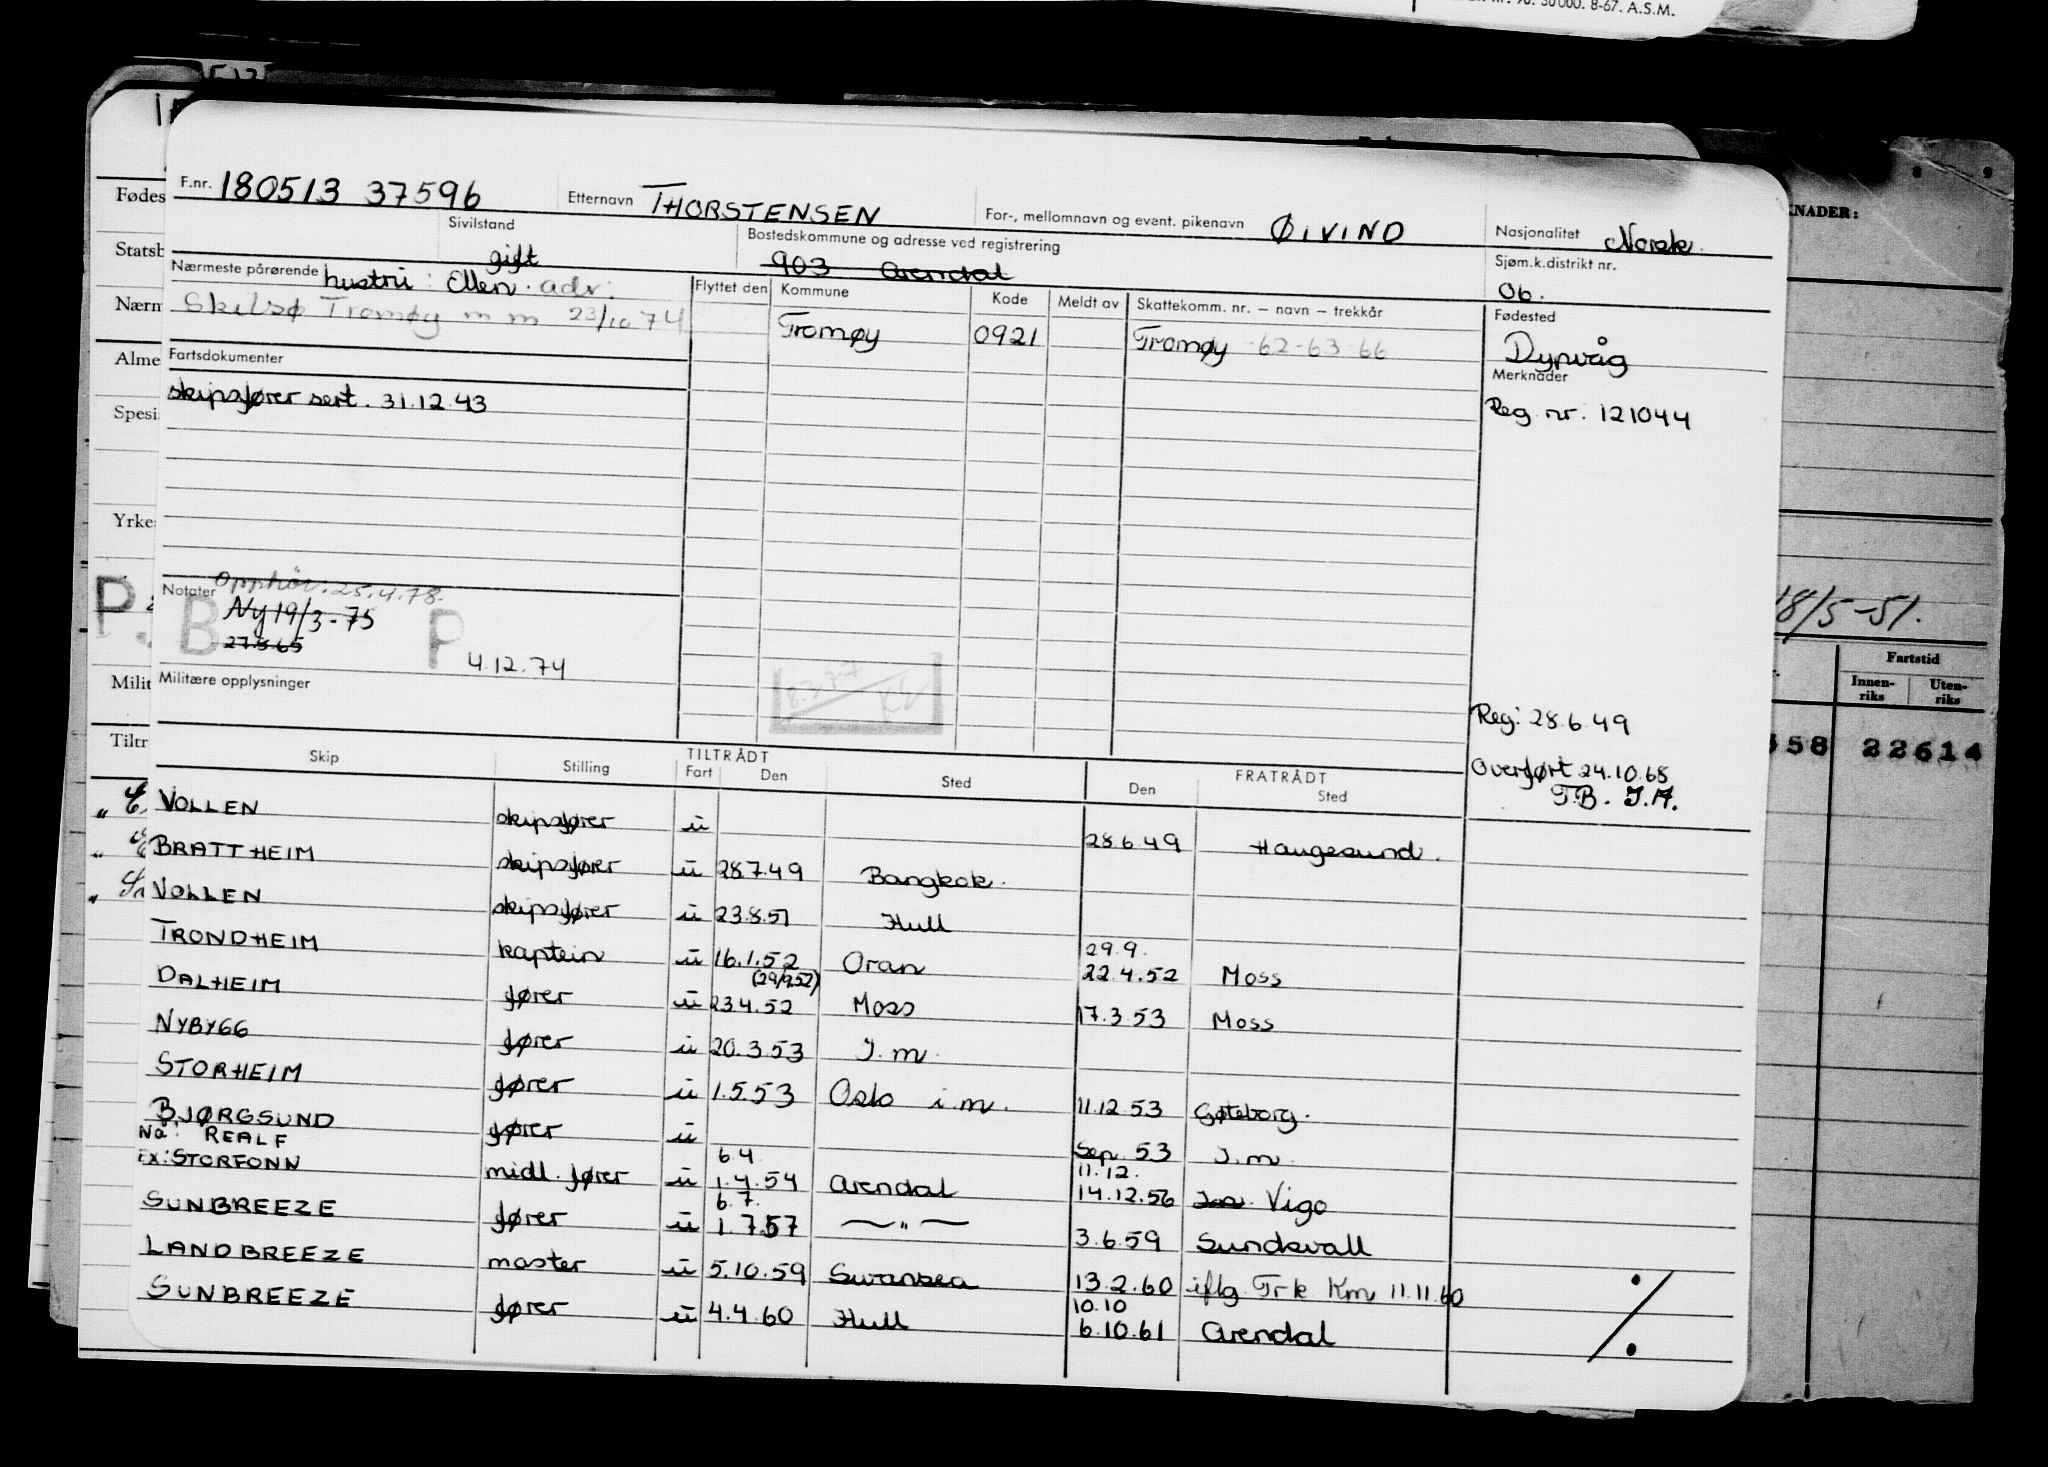 nr. 90. 30000. 8-67. A.S.M.
F.nr. 180513 37596 Etternavn THORSTENSEN For-, mellomnavn og event. pikenavn ØIVIND Nasjonalitet Norsk.
Sivilstand gift Bostedskommune og adresse ved registrering 903 Arendal Sjøm.k.distrikt nr. 06.
Nærmeste pårørende hustru: Ellen. adr: Flyttet den Kommune Kode Meldt av Skattekomm. nr. – navn – trekkår Fødested
Skilsø Tromøy m m 23/10 74 Tromøy 0921 Tromøy -62-63-66 Dypvåg
Fartsdokumenter Merknader
skipsfører sert. 31.12.43 Reg. nr: 121044
Notater Opphør: 25.4.78.
B Ny 19/3-75 P
27.5.65 4.12.74
8.3.77
Militære opplysninger
Reg: 28.6.49
Overført 24.10.68
T.B. J.A.
Skip Stilling TILTRÅDT Fart Den Sted FRATRÅDT Den Sted
VOLLEN skipsfører u 28.6.49 Haugesund.
BRATTHEIM skipsfører u 28.7.49 Bangkok.
VOLLEN skipsfører u 23.8.51 Hull
TRONDHEIM kaptein u 16.1.52 Oran 29.9. 22.4.52 Moss
(29/9.52)
DALHEIM fører u 23.4.52 Moss 17.3.53 Moss
NYBYGG fører u 20.3.53 J.m.
STORHEIM fører u 1.5.53 Oslo i.m. 11.12.53 Gøteborg.
BJØRGSUND fører u Sep. 53 J.m.
Nå: REALF
Ex: STORFONN midl. fører u 6.4. 1.4.54 Arendal 11.12. 14.12.56 J.m. Vigo
SUNBREEZE fører u 6.7. 1.7.57 —"— 3.6.59 Sundsvall
LANDBREEZE master u 5.10.59 Swansea 13.2.60 iflg. Trk Km 11.11.60
SUNBREEZE fører u 4.4.60 Hull 10.10 6.10.61 Arendal
Fødes
Statsb
Nærm
Alme
Spesi
Yrke
P.
Milit
Tiltr
KNADER:
18/5-51.
Fartstid
Innen-
riks
Uten-
riks
558 22614